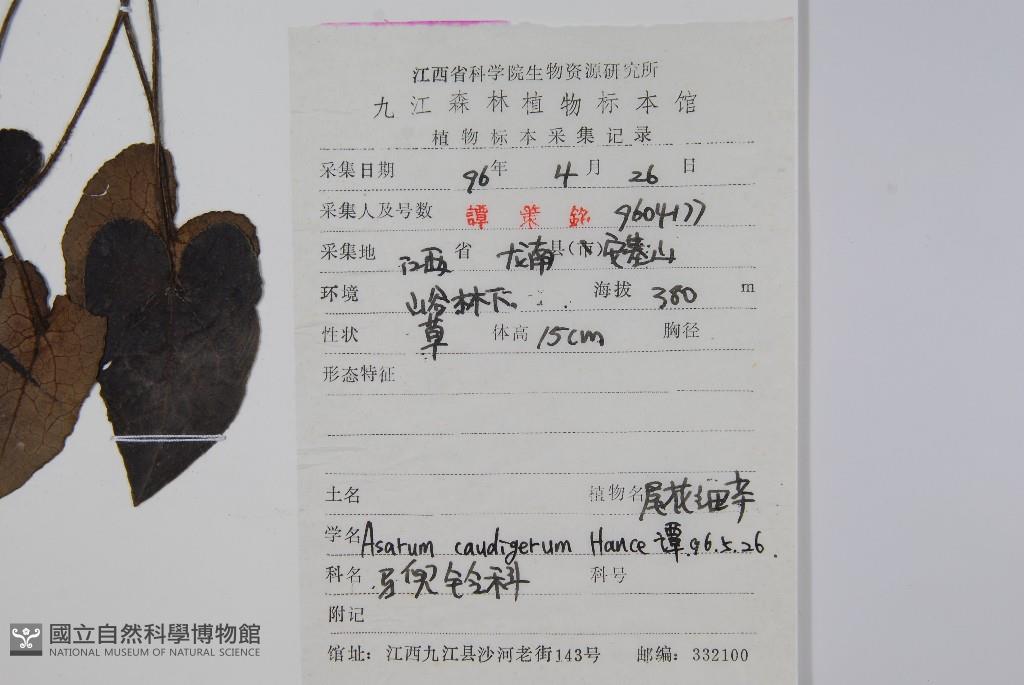 江西省科学院生物资源研究所
九江森林植物标本馆
植物标本采集记录
采集日期 96年 4月 26日
采集人及号数 譚策銘 9604177
采集地 江西省 龙南县(市)安基山
环境 山谷林下. 海拔 380 m
性状 草 体高 15cm 胸径
形态特征
土名 植物名 尾花细辛
学名 Asarum caudigerum Hance 谭.96.5.26.
科名 马兜铃科 科号
附记
馆址：江西九江县沙河老街143号 邮编：332100
國立自然科學博物館
NATIONAL MUSEUM OF NATURAL SCIENCE